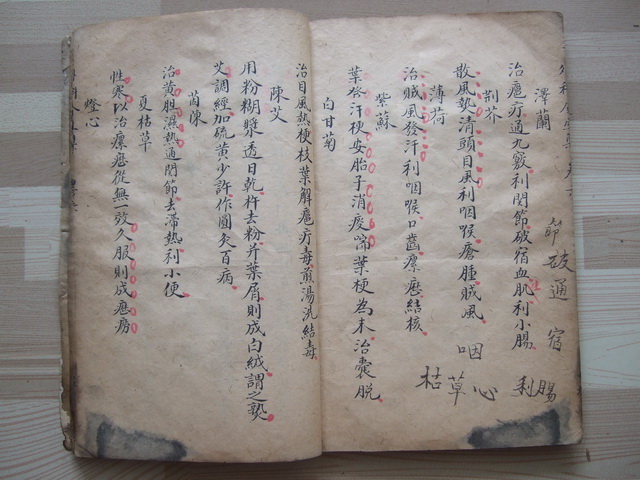 澤蘭
治瘧疔通九竅利閞節破宿血肌利小腸
荆芥
散風墊清頭目風利咽喉瘡腫贼風
薄荷
治贼風發汗利咽喉口齒瘰癧結核
紫蘇
葉發汗梗安胎子消痰喘葉梗為末治囊脱
白甘菊
治目風熱梗枝葉解瘧疔毒煎湯洗結毒
陳艾
用粉糊漿透日乾杵去粉并葉屑則成白絨謂之熟
艾調經加硫黄少許作圓灸百病
茵陳
治黄胆濕熱通閞節去滞熱利小便
夏枯草
性寒以治瘰癧從無一效久服則成癧癆
燈心
節破通宿
利腸
咽
枯草心